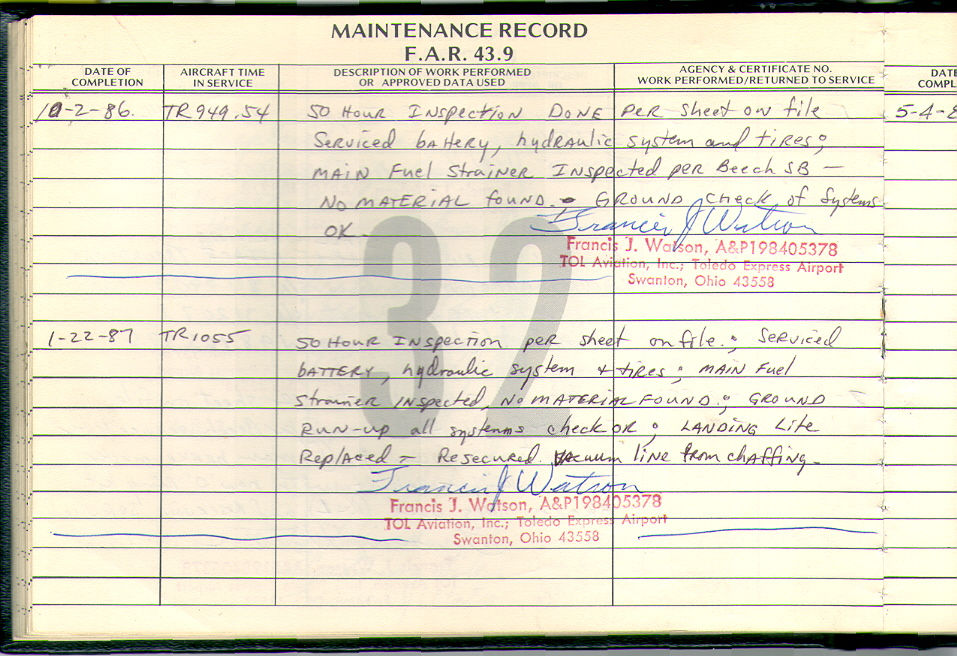 MAINTENANCE RECORD
F.A.R. 43.9
DATE OF COMPLETION AIRCRAFT TIME IN SERVICE DESCRIPTION OF WORK PERFORMED OR APPROVED DATA USED AGENCY & CERTIFICATE NO. WORK PERFORMED/RETURNED TO SERVICE DATE COMPL
10-2-86. TR949.54 50 Hour Inspection Done per sheet on file 5-4-8
Serviced battery, hydraulic system and tires;
MAIN Fuel Strainer Inspected per Beech SB –
No MATERIAL found. - GROUND check of Systems
OK.
Francis J Watson
Francis J. Watson, A&P198405378
TOL Aviation, Inc.; Toledo Express Airport
Swanton, Ohio 43558
32
1-22-87 TR1055 50 Hour Inspection per sheet on file.; Serviced
BATTERY, hydraulic system & tires; MAIN Fuel
Strainer Inspected, No MATERIAL FOUND; GROUND
RUN-up all systems check OK; LANDING Lite
Replaced = Resecured vacuum line from chaffing-
Francis J Watson
Francis J. Watson, A&P198405378
TOL Aviation, Inc.; Toledo Express Airport
Swanton, Ohio 43558